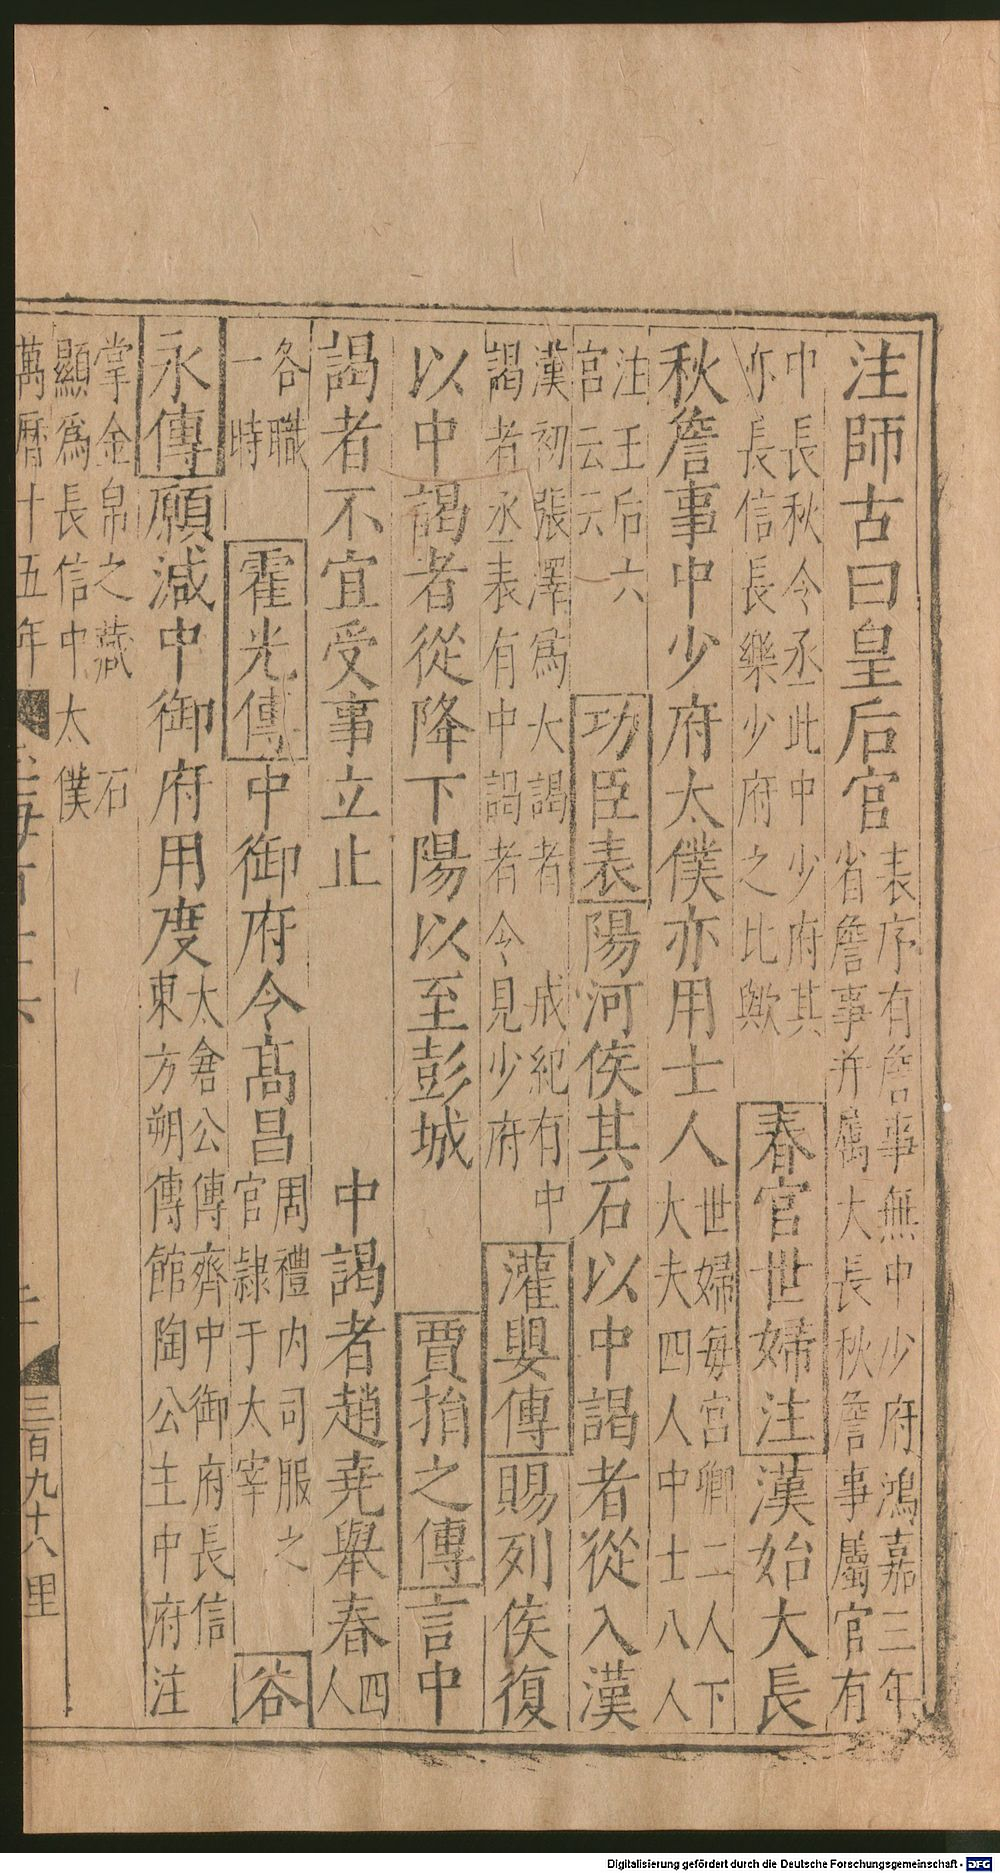 注師古曰皇后官表序有詹事無中少府鴻嘉三年
省詹事并屬大長秋詹事屬官有
中長秋令丞此中少府其
亦長信長樂少府之比歟春官世婦注漢始大長
秋詹事中少府太僕亦用士人世婦每宮卿二人下
大夫四人中士八人
注王后六
宮云云功臣表陽河侯其石以中謁者從入漢
漢初張澤爲大謁者 戒紀有中
謁者丞表有中謁者令見少府灌嬰傳賜列侯復
以中謁者從降下陽以至彭城 賈捐之傳言中
謁者不宜受事立止 中謁者趙堯舉春四
人
各職
一時 霍光傳中御府令髙昌周禮内司服之
官隷于大宰 谷
永傳願減中御府用度太倉公傳齊中御府長信
東方朔傳館陶公主中府注
掌金帛之藏 石
顯爲長信中太僕
萬曆十五年
三百九十八里
Digitalisierung gefördert durch die Deutsche Forschungsgemeinschaft - DFG